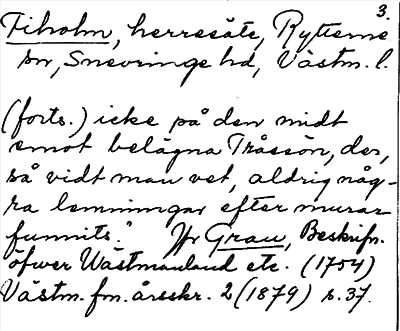 3.
Fiholm, herresäte, Rytterne
sn, Snevringe hd, Västm. l.
(forts.) icke på den midt
emot belägna Tråssön, der,
så vidt man vet, aldrig någ-
ra lemningar efter murar
funnits." Jfr Grau, Beskrifn.
öfwer Wästmanland etc. (1754)
Västm. fm. årsskr. 2 (1879) s. 37.